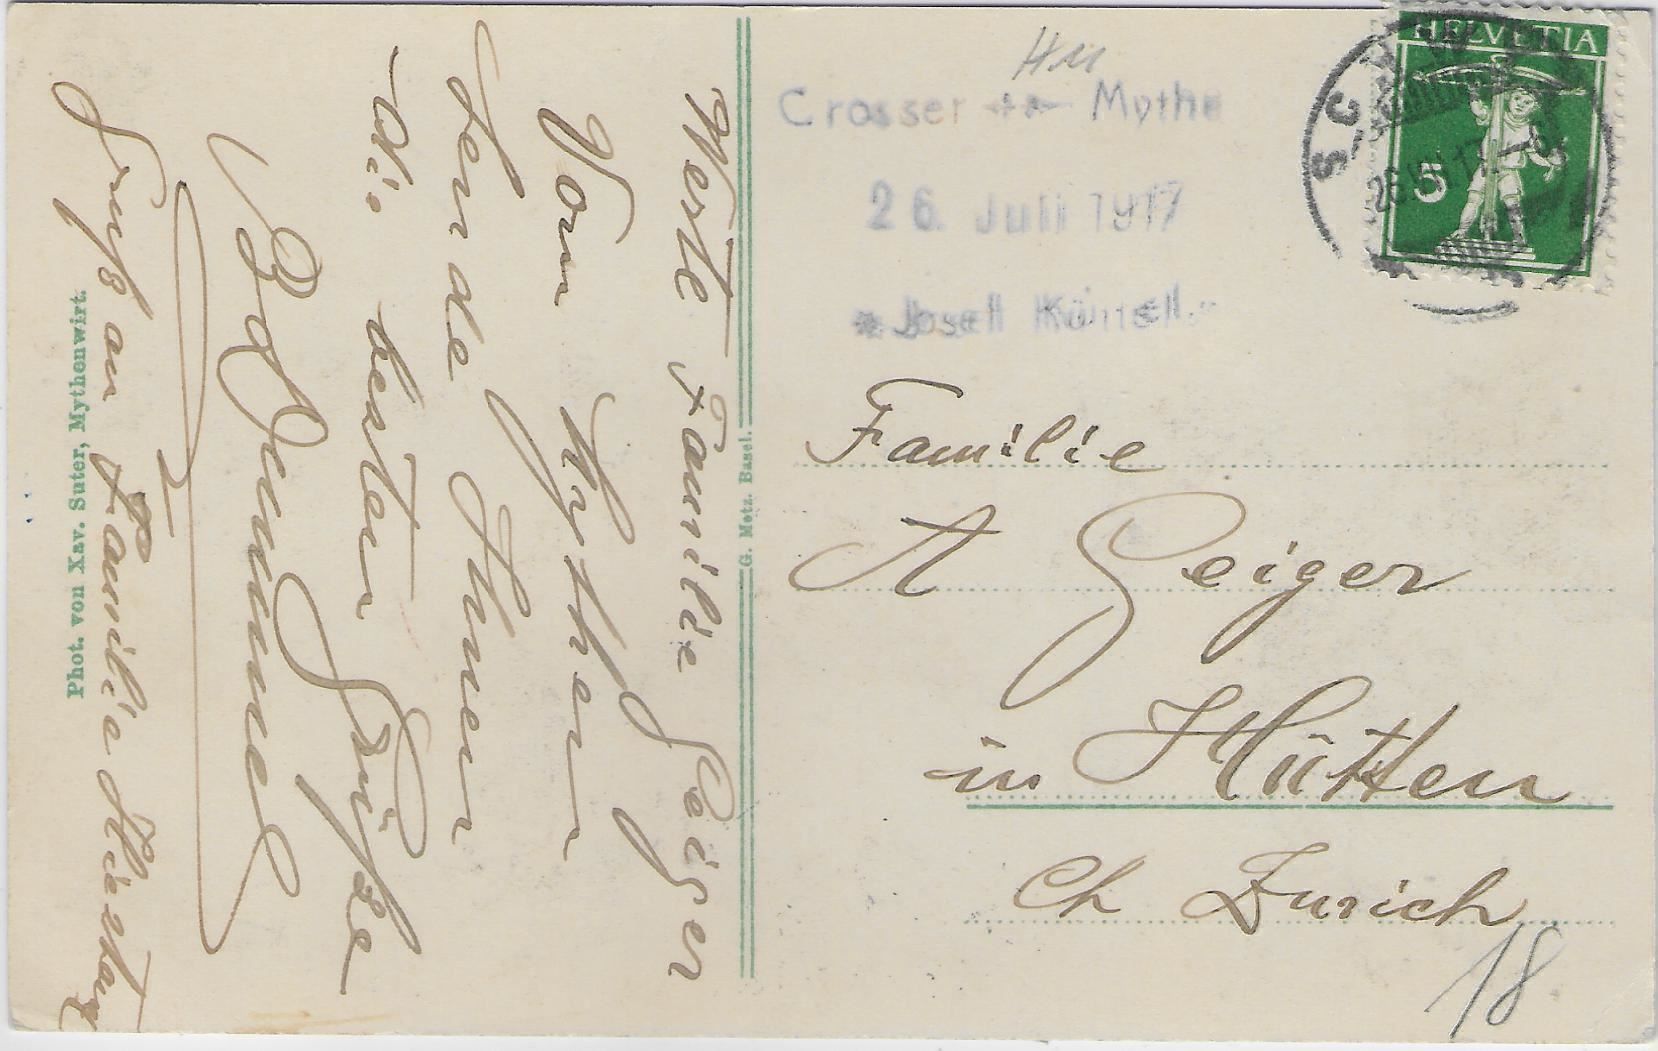 Werte Familie Geiger
Vom Mythen
sende Ihnen
die besten Grüße
Gruß an Familie Hiestand
Phot. von Xav. Suter, Mythenwirt.
G. Metz. Basel.
Crosser Mythe
26. Juli 1917
Josef
HELVETIA
5
SCHWYZ
26.VII.17
Familie
A Geiger
in Hütten
Ct Zurich
18